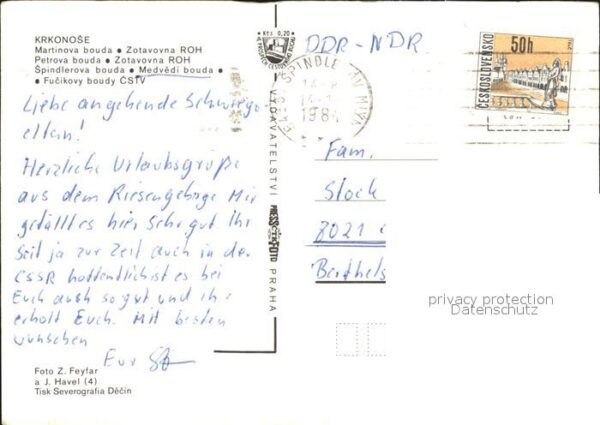 KRKONOŠE
Martinova bouda ● Zotavovna ROH
Petrova bouda ● Zotavovna ROH
Špindlerova bouda ● Medvědí bouda ●
● Fučikovy boudy ČSTV
Liebe angehende Schwieger
eltern!
Herzliche Urlaubsgrüße
aus dem Riesengebirge Mir
gefällt es hier sehr gut Ihr
Seit ja zur Zeit auch in der
CSSR hoffentlich ist es bei
Euch auch so gut und ihr
erholt Euch. Mit besten
wünschen
Eur
Foto Z. Feyfar
a J. Havel (4)
Tisk Severografia Děčín
Kčs 0,20
VYDAVATELSTVÍ
PRESSFOTO
PRAHA
DDR-NDR
ŠPINDLERŮV MLÝN
ČESKOSLOVENSKO
50h
Fam.
Stock
8021
Berthels
privacy protection
Datenschutz